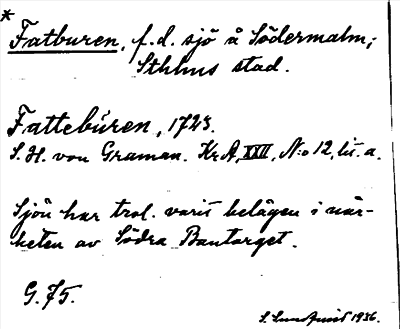 *
Fatburen, f.d. sjö å Södermalm;
Sthlms stad.
Fattebúren, 1723.
S.H. von Graman. Kr.A, XXII, N:o 12, lit. a.
Sjön har trol. varit belägen i när-
heten av Södra Bantorget.
G. 75.
S. Sundqvist 1936.